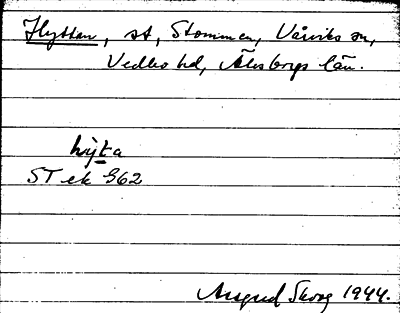 Hyttan, st, Stommen, Vårviks sn,
Vedbo hd, Älvsborgs län.
hy̆ta
ST ek 962
Skoog 1944.